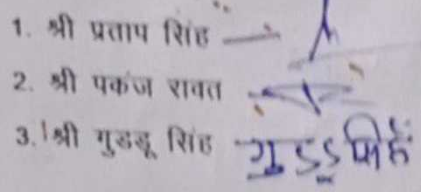 1. श्री प्रताप सिंह —
2. श्री पकंज रावत
3. श्री गुडडू सिंह गुडडू सिंह